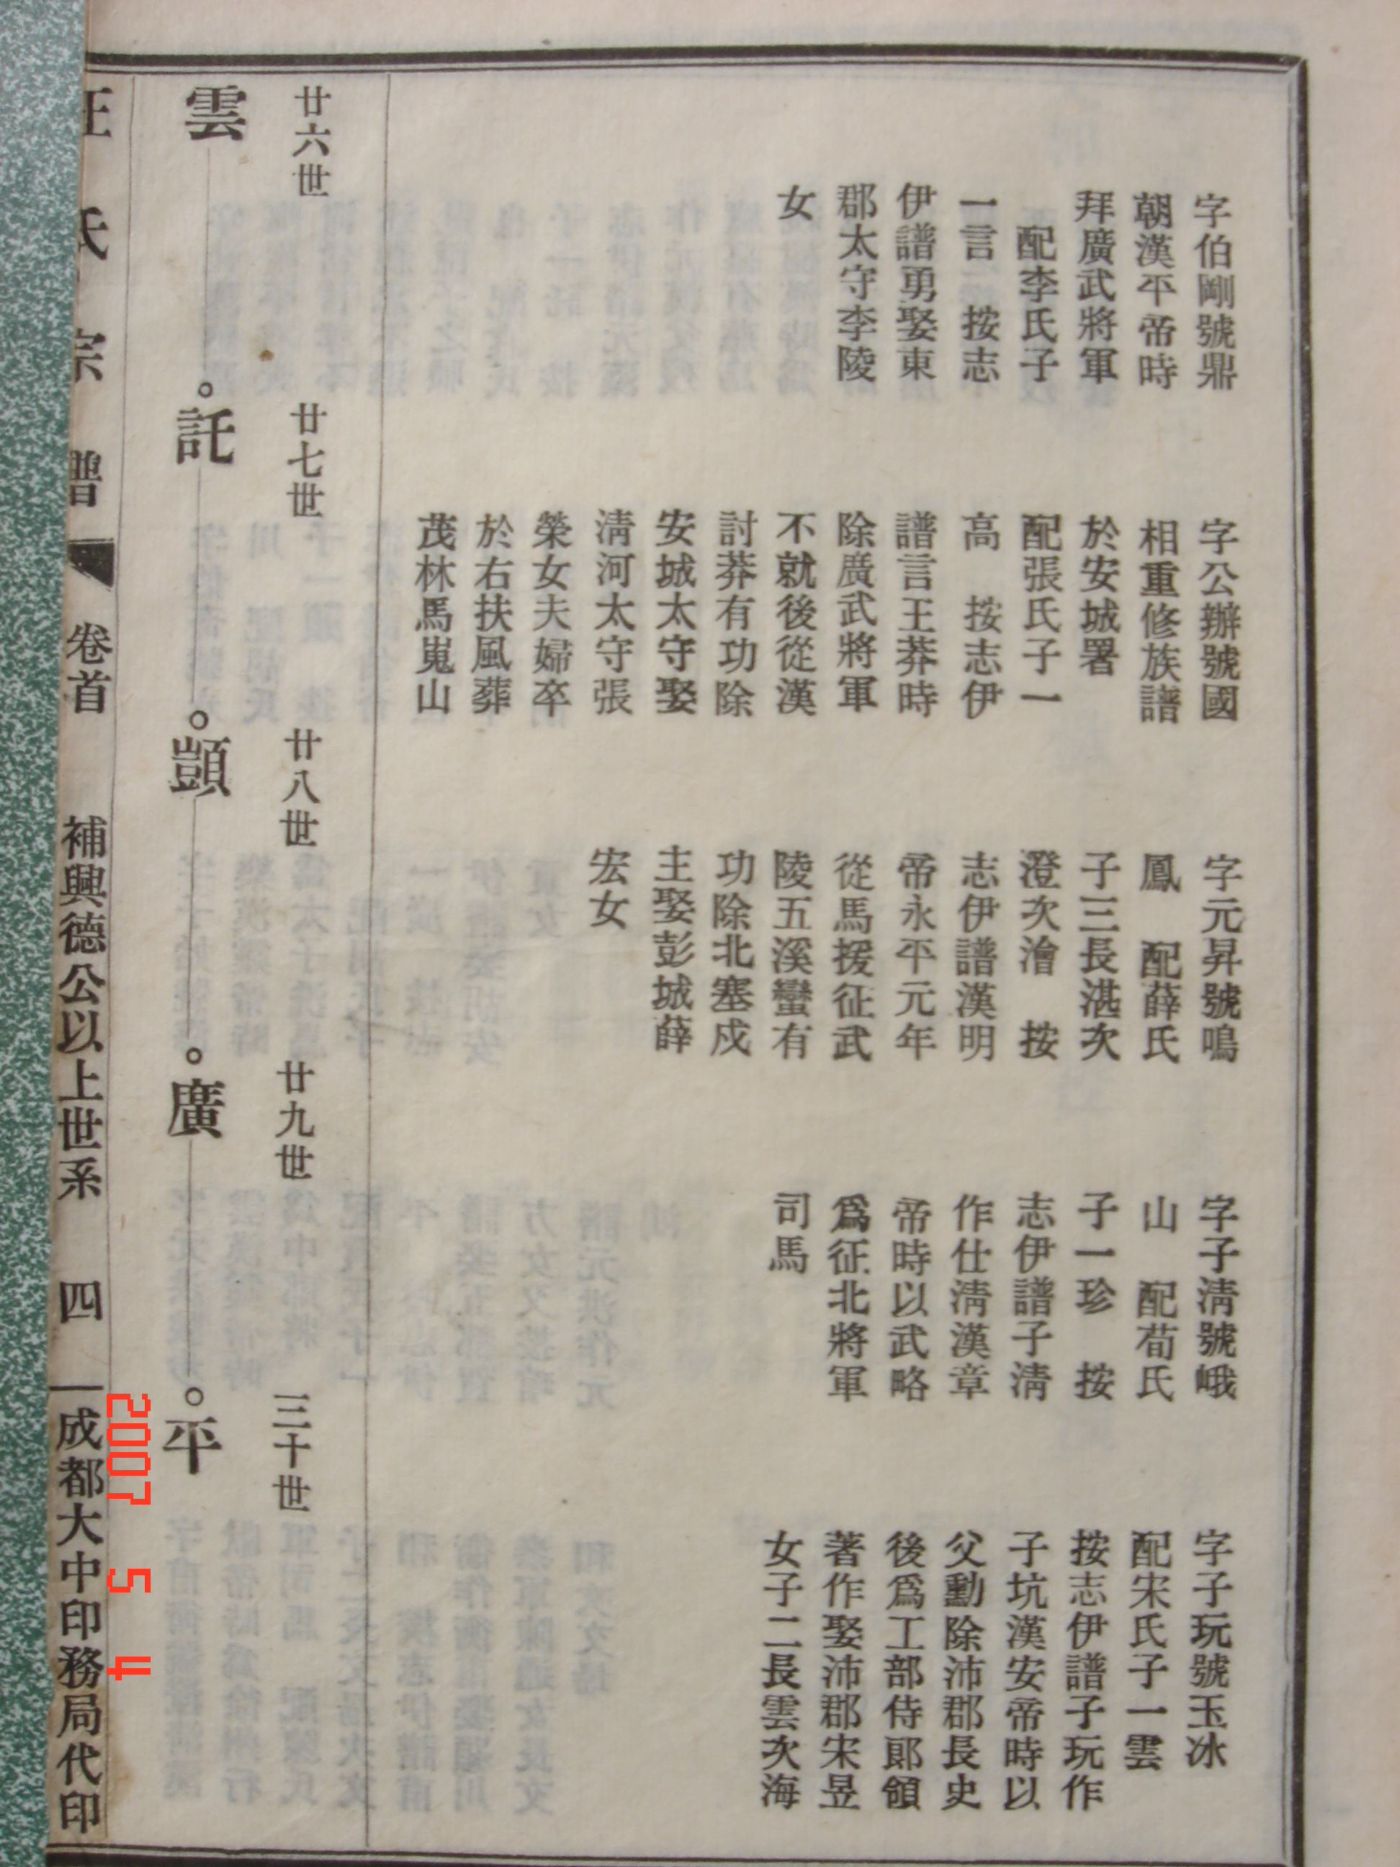 字伯剛號鼎
朝漢平帝時
拜廣武將軍
配李氏子
一言 按志
伊譜勇娶東
郡太守李陵
女
字公辦號國
相重修族譜
於安城署
配張氏子一
高 按志伊
譜言王莽時
除廣武將軍
不就後從漢
討莽有功除
安城太守娶
淸河太守張
榮女夫婦卒
於右扶風葬
茂林馬嵬山
字元昇號鳴
鳳 配薛氏
子三長湛次
澄次澮 按
志伊譜漢明
帝永平元年
從馬援征武
陵五溪蠻有
功除北塞戍
主娶彭城薛
宏女
字子淸號峨
山 配荀氏
子一珍 按
志伊譜子淸
作仕淸漢章
帝時以武略
爲征北將軍
司馬
字子玩號玉冰
配宋氏子一雲
按志伊譜子玩作
子坑漢安帝時以
父勳除沛郡長史
後爲工部侍郞領
著作娶沛郡宋昱
女子二長雲次海
廿六世 廿七世 廿八世 廿九世 三十世
雲 託 顗 廣 平
氏宗譜 卷首 補興德公以上世系 四 成都大中印務局代印
2007 5 4